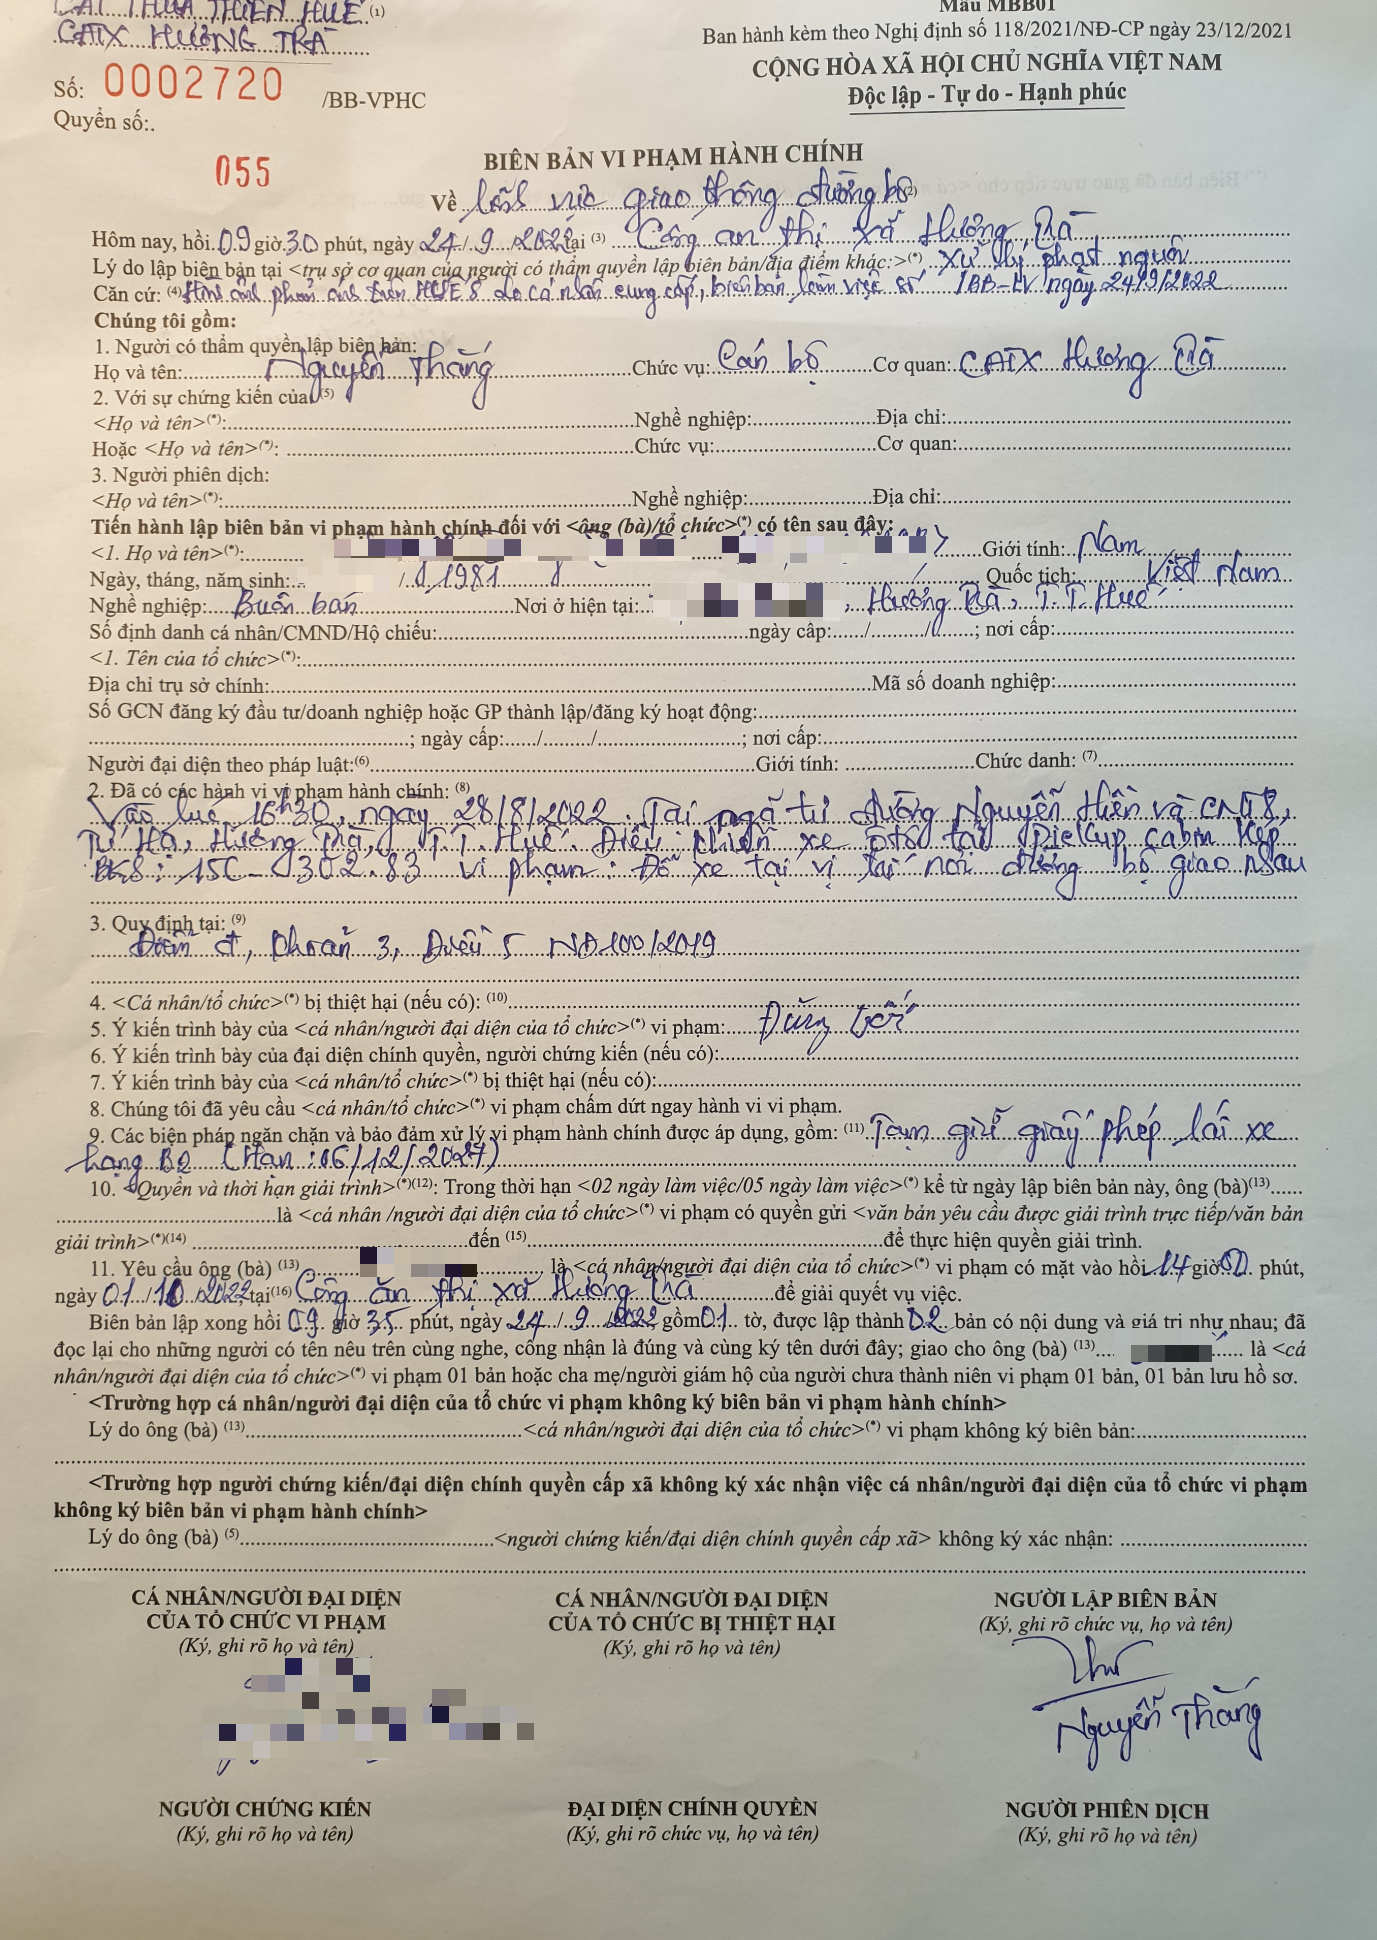 CAT THỪA THIÊN HUẾ (1)
CATX HƯƠNG TRÀ
Mẫu MBB01
Ban hành kèm theo Nghị định số 118/2021/NĐ-CP ngày 23/12/2021
CỘNG HÒA XÃ HỘI CHỦ NGHĨA VIỆT NAM
Độc lập - Tự do - Hạnh phúc
Số: 0002720 /BB-VPHC
Quyển số:.
055
BIÊN BẢN VI PHẠM HÀNH CHÍNH
Về lĩnh vực giao thông đường bộ (2)
Hôm nay, hồi 09 giờ 30 phút, ngày 24/9/2022 tại (3) Công an thị xã Hương Trà
Lý do lập biên bản tại <trụ sở cơ quan của người có thẩm quyền lập biên bản/địa điểm khác:>(*) xử lý phạt nguội
Căn cứ: (4) Hình ảnh phản ánh trên HUES do cá nhân cung cấp, biên bản làm việc số /BB-LV ngày 24/9/2022
Chúng tôi gồm:
1. Người có thẩm quyền lập biên bản:
Họ và tên: Nguyễn Thắng Chức vụ: Cán bộ Cơ quan: CATX Hương Trà
2. Với sự chứng kiến của (5)
<Họ và tên>(*): Nghề nghiệp: Địa chỉ:
Hoặc <Họ và tên>(*): Chức vụ: Cơ quan:
3. Người phiên dịch:
<Họ và tên>(*): Nghề nghiệp: Địa chỉ:
Tiến hành lập biên bản vi phạm hành chính đối với <ông (bà)/tổ chức>(*) có tên sau đây:
<1. Họ và tên>(*): Giới tính: Nam
Ngày, tháng, năm sinh: / 1981 Quốc tịch: Việt Nam
Nghề nghiệp: Buôn bán Nơi ở hiện tại: , Hương Trà, T.T.Huế
Số định danh cá nhân/CMND/Hộ chiếu: ngày cấp: / / ; nơi cấp:
<1. Tên của tổ chức>(*):
Địa chỉ trụ sở chính: Mã số doanh nghiệp:
Số GCN đăng ký đầu tư/doanh nghiệp hoặc GP thành lập/đăng ký hoạt động:
; ngày cấp: / / ; nơi cấp:
Người đại diện theo pháp luật:(6) Giới tính: Chức danh: (7)
2. Đã có các hành vi vi phạm hành chính: (8)
Vào lúc 16h30, ngày 28/8/2022. Tại ngã tư đường Nguyễn Hiền và CMT8,
Tứ Hạ, Hương Trà, T.T.Huế. Điều khiển xe ôtô tải pickup cabin kép
BKS: 15C-302.83 vi phạm: Đỗ xe tại vị trí nơi đường bộ giao nhau
3. Quy định tại: (9)
Điểm đ, khoản 3, Điều 5 NĐ100/2019
4. <Cá nhân/tổ chức>(*) bị thiệt hại (nếu có): (10)
5. Ý kiến trình bày của <cá nhân/người đại diện của tổ chức>(*) vi phạm: Đúng lỗi
6. Ý kiến trình bày của đại diện chính quyền, người chứng kiến (nếu có):
7. Ý kiến trình bày của <cá nhân/tổ chức>(*) bị thiệt hại (nếu có):
8. Chúng tôi đã yêu cầu <cá nhân/tổ chức>(*) vi phạm chấm dứt ngay hành vi vi phạm.
9. Các biện pháp ngăn chặn và bảo đảm xử lý vi phạm hành chính được áp dụng, gồm: (11) Tạm giữ giấy phép lái xe
hạng B2 (Hạn: 06/12/2027)
10. <Quyền và thời hạn giải trình>(*)(12): Trong thời hạn <02 ngày làm việc/05 ngày làm việc>(*) kể từ ngày lập biên bản này, ông (bà)(13)
là <cá nhân /người đại diện của tổ chức>(*) vi phạm có quyền gửi <văn bản yêu cầu được giải trình trực tiếp/văn bản
giải trình>(*)(14) đến (15) để thực hiện quyền giải trình.
11. Yêu cầu ông (bà) (13) là <cá nhân/người đại diện của tổ chức>(*) vi phạm có mặt vào hồi 14 giờ 00 phút,
ngày 01/10/2022 tại(16) Công an thị xã Hương Trà để giải quyết vụ việc.
Biên bản lập xong hồi 09 giờ 35 phút, ngày 24/9/2022, gồm 01 tờ, được lập thành 02 bản có nội dung và giá trị như nhau; đã
đọc lại cho những người có tên nêu trên cùng nghe, công nhận là đúng và cùng ký tên dưới đây; giao cho ông (bà) (13) là <cá
nhân/người đại diện của tổ chức>(*) vi phạm 01 bản hoặc cha mẹ/người giám hộ của người chưa thành niên vi phạm 01 bản, 01 bản lưu hồ sơ.
<Trường hợp cá nhân/người đại diện của tổ chức vi phạm không ký biên bản vi phạm hành chính>
Lý do ông (bà) (13) <cá nhân/người đại diện của tổ chức>(*) vi phạm không ký biên bản:
<Trường hợp người chứng kiến/đại diện chính quyền cấp xã không ký xác nhận việc cá nhân/người đại diện của tổ chức vi phạm
không ký biên bản vi phạm hành chính>
Lý do ông (bà) (5) <người chứng kiến/đại diện chính quyền cấp xã> không ký xác nhận:
CÁ NHÂN/NGƯỜI ĐẠI DIỆN CỦA TỔ CHỨC VI PHẠM
(Ký, ghi rõ họ và tên)
CÁ NHÂN/NGƯỜI ĐẠI DIỆN CỦA TỔ CHỨC BỊ THIỆT HẠI
(Ký, ghi rõ họ và tên)
NGƯỜI LẬP BIÊN BẢN
(Ký, ghi rõ chức vụ, họ và tên)
Nguyễn Thắng
NGƯỜI CHỨNG KIẾN
(Ký, ghi rõ họ và tên)
ĐẠI DIỆN CHÍNH QUYỀN
(Ký, ghi rõ chức vụ, họ và tên)
NGƯỜI PHIÊN DỊCH
(Ký, ghi rõ họ và tên)